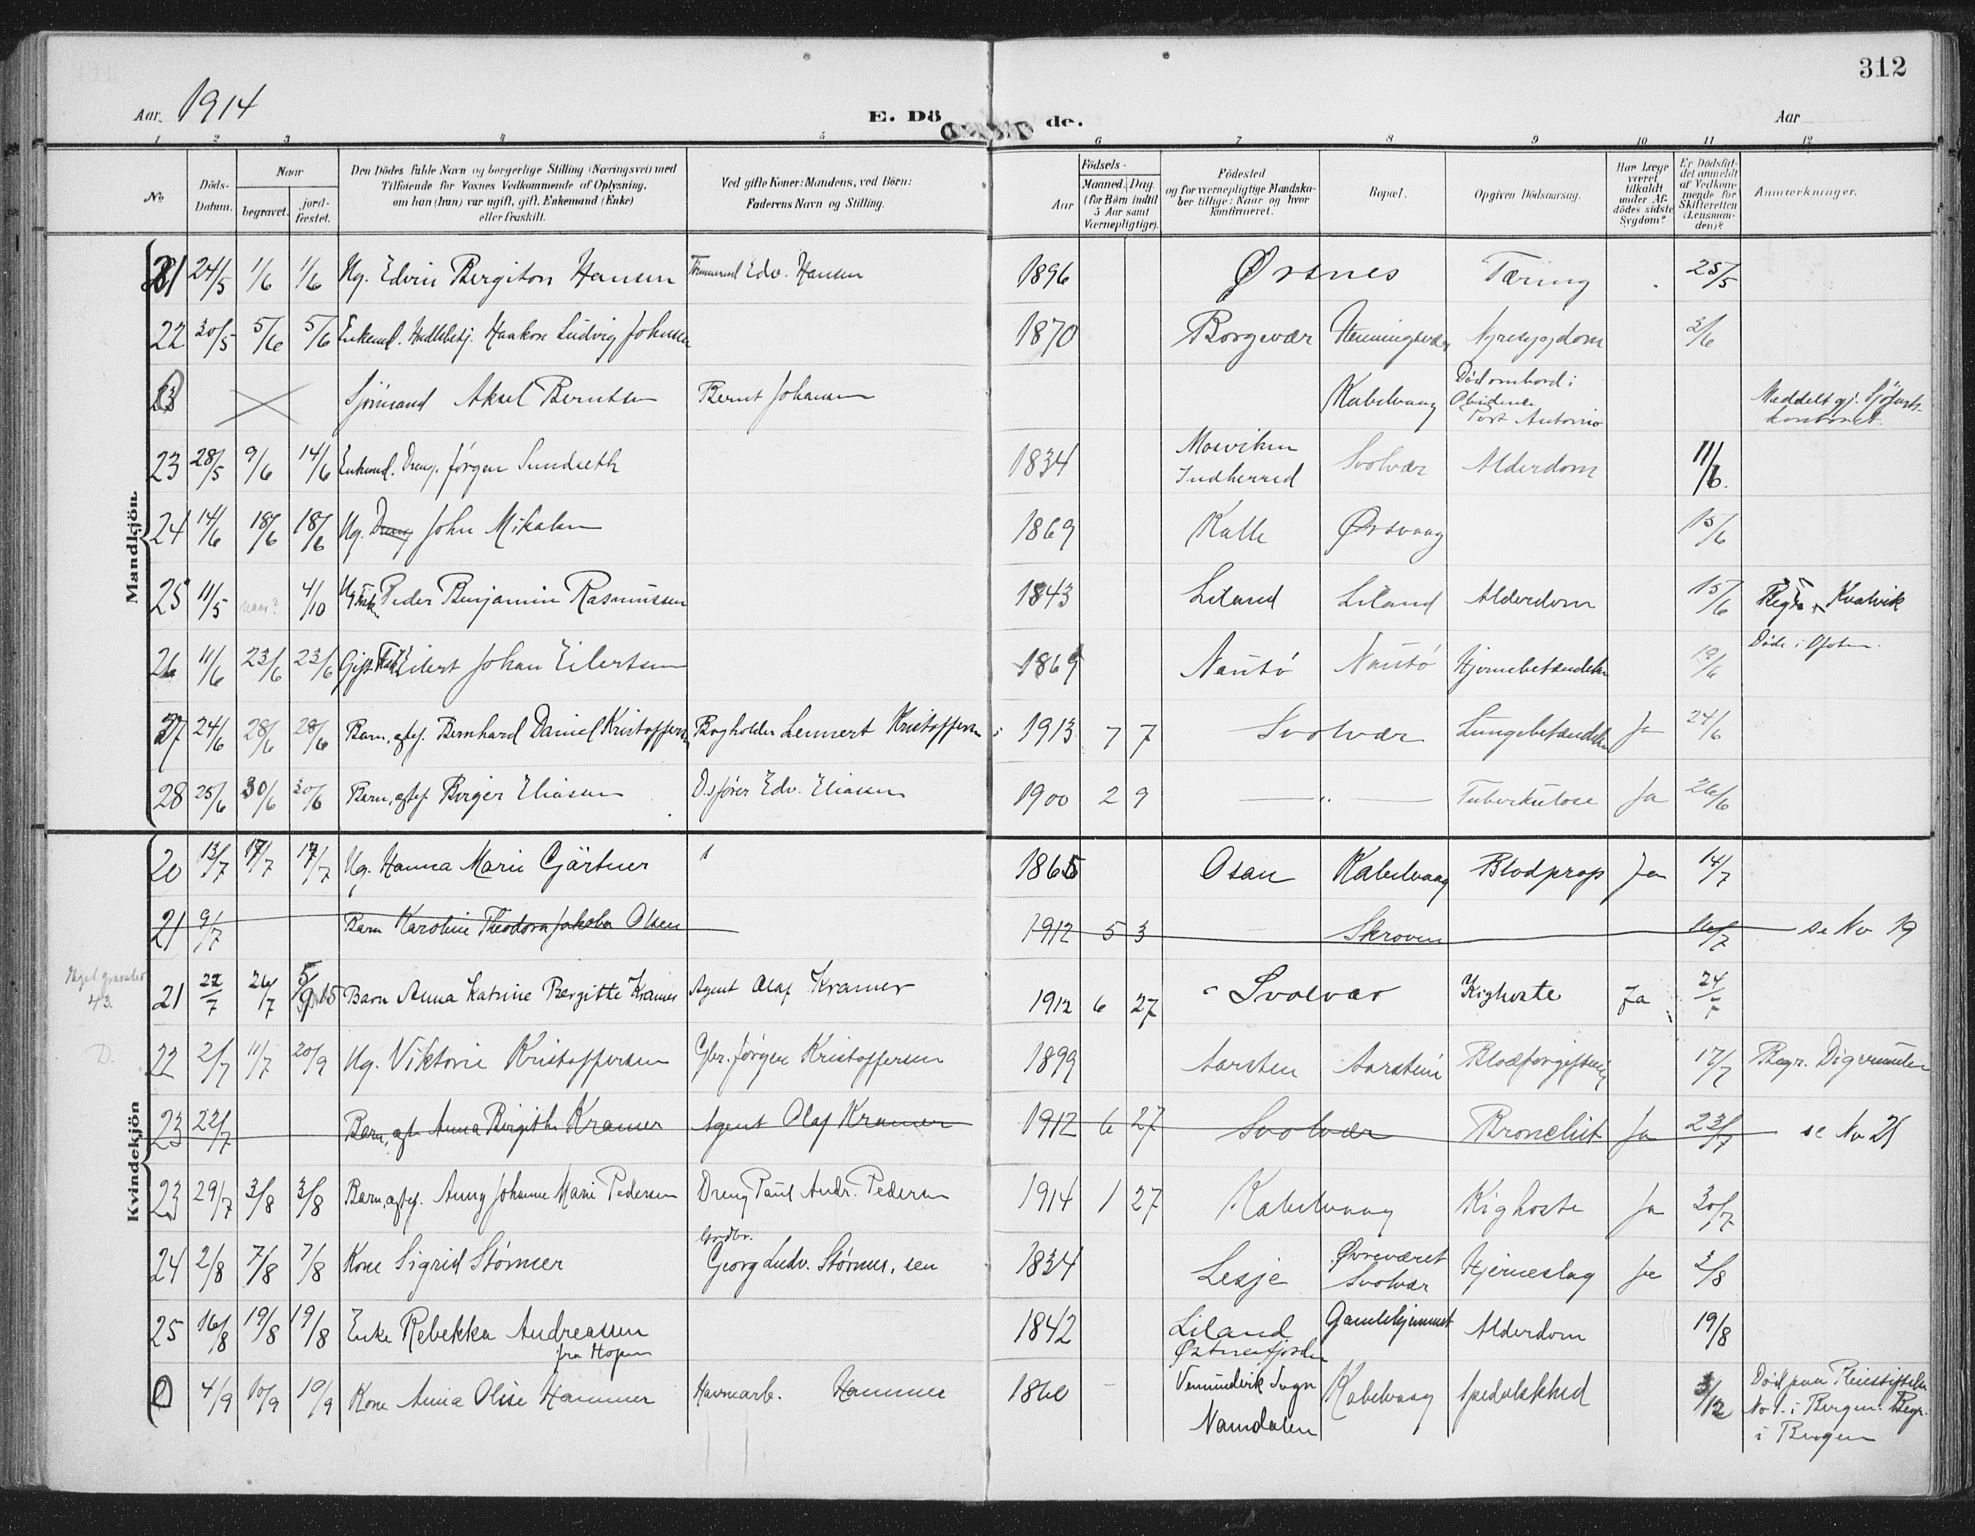 312
Aar 1914
E. Döde.
Aar
1 2 3 4 5 6 7 8 9 10 11 12
No.
Döds-Datum.
Naar
begravet.
jord-fæstet.
Den Dödes fulde Navn og borgerlige Stilling (Næringsvei) med
Tilföiende for Voxnes Vedkommende af Oplysning,
om han (hun) var ugift, gift, Enkemand (Enke)
eller fraskilt.
Ved gifte Koner: Mandens, ved Börn:
Faderens Navn og Stilling.
Födsels-
Aar
Maaned. Dag
(for Börn indtil
5 Aar samt
Værnepligtige).
Födested
og for værnepligtige Mandska-
ber tillige: Naar og hvor
konfirmeret.
Bopæl.
Opgiven Dödsaarsag.
Har Læge
været
tilkaldt
under Af-
dödes sidste
Sygdom?
Er Dödsfal-
det anmeldt
af Vedkom-
mende for
Skifteretten
(Lensman-
den)?
Anmærkninger.
Mandkjön
21 24/5 1/6 1/6 Ug. Edvin Bergiton Hansen Edv. Hansen 1896 Ørsnes Tæring 25/5
22 30/5 5/6 5/6 Enkemd. Haakon Ludvig Johnsen 1870 Borgevær Henningsvær Nyresygdom 3/6
Sjömand Aksel Berntsen Bernt Johansen Kabelvaag Död ombord i
Port Antonio
Meddelt gj. Sjöfarts-
kontoret.
23 28/5 9/6 14/6 Enkemd. Dreng. Jørgen Sundseth 1834 Mosviken
Indherred Svolvær Alderdom 11/6.
24 14/6 18/6 18/6 Ug. Dreng John Mikalsen 1869 Kalle Ørsvaag 15/6
25 11/5 naar? 4/10 Ug. Fisk. Peder Benjamin Rasmussen 1843 Liland Liland Alderdom 15/6 Begr. Kvalvik
26 11/6 23/6 23/6 Gift Fisk. Eilert Johan Eilertsen 1869 Nautö Nautö Hjernebetændelse 19/6 Døde i Ofoten.
27 24/6 28/6 28/6 Barn, ægtef. Bernhard Daniel Kristoffersen Bogholder Lennert Kristoffersen 1913 7 7 Svolvær Lungebetændelse Ja 24/6
28 25/6 30/6 30/6 Barn, ægtef. Birger Eliasen D.sfører Edv. Eliasen 1900 2 9 — " — Tuberkulose Ja 26/6
Kvindekjön
20 13/7 17/7 17/7 Ug. Hanna Marie Gjärtner 1865 Osan Kabelvaag Blodprop Ja 14/7
21 9/7 Barn Karoline Theodora Jakoba Olsen 1912 5 3 Skroven 16/7 se No 19
43.
21 22/7 26/7 5/9 15 Barn Anna Katrine Bergitte Kramer Agent Olaf Kramer 1912 6 27 Svolvær Kighoste Ja 24/7
D.
22 2/7 11/7 20/9 Ug. Viktorie Kristoffersen Gbr. Jørgen Kristoffersen 1899 Aarsten Aarsteni Blodforgiftning 17/7 Begr. Digermulen
23 22/7 Barn, æf. Anna Birgithe Kramer Agent Olaf Kramer 1912 6 27 Svolvær Bronchit Ja 23/7 se No 21
23 29/7 3/8 3/8 Barn, ægtef. Anny Johanne Marie Pedersen Dreng Paul Andr. Pedersen 1914 1 27 Kabelvaag Kighoste Ja 30/7
24 2/8 7/8 7/8 Kone Sigrid Störmer Gordbr.
Georg Ludv. Störmer, sen 1834 Lesje Øvreværet
Svolvær Hjerneslag Ja 3/8
25 16/8 19/8 19/8 Enke Rebekka Andreassen
fra Hopen 1842 Liland
Østnesfjorden Gamlehjemmet Alderdom 19/8
0 4/9 10/9 10/9 Kone Anna Olise Hammer Havnearb. Hammer 1860 Vemundvik Sogn
Namdalen Kabelvaag Spedalskhed 3/12 Död paa Pleiestiftelse
No 1. i Bergen. Begr.
i Bergen